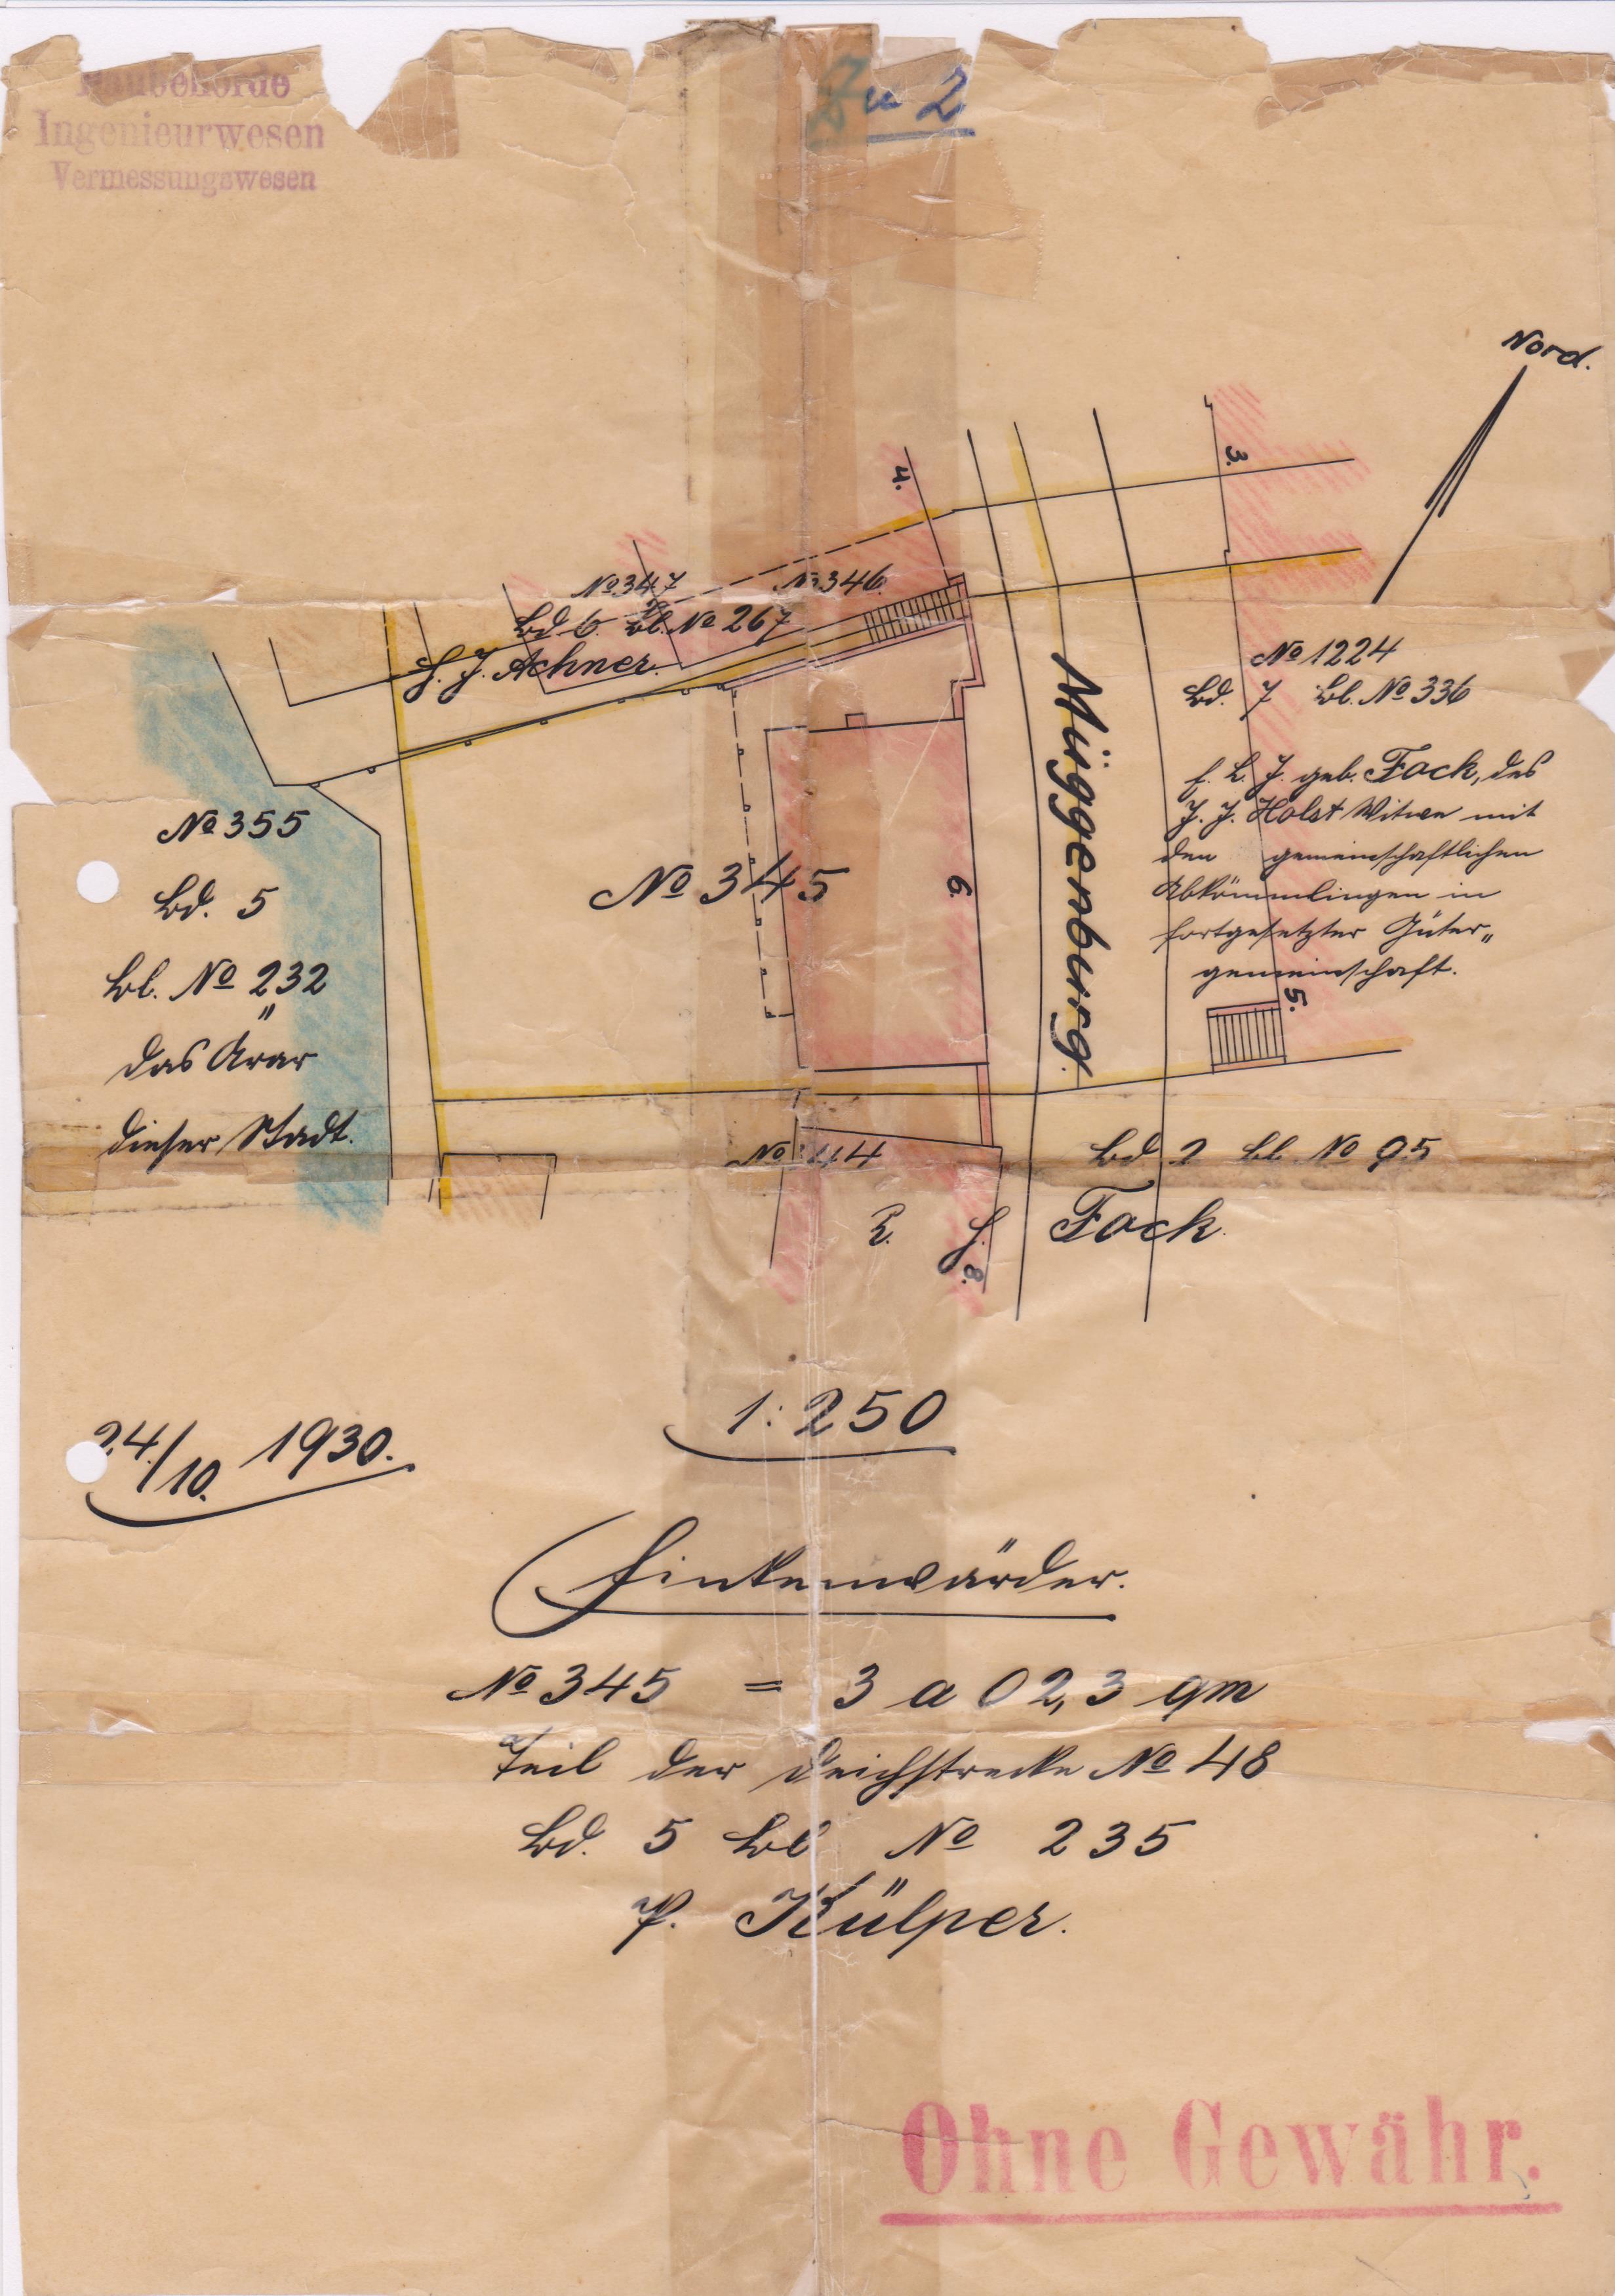 Baubehörde
Ingenieurwesen
Vermessungswesen
Zu 2
Nord.
3.
4.
No 347
No 346.
Bd 6. Bl. No 267
H. J. Achner.
No 1224
Bd. 7 Bl. No 336
geb. Fock, des
J. J. Holst Witwe mit
den gemeinschaftlichen
Abkömmlingen in
fortgesetzter Güter„
gemeinschaft.
5.
Müggenburg.
No 355
Bd. 5
Bl. No 232
das Ärar
dieser Stadt.
No 345
6.
No 344
Bd 2 Bl. No 95
H. Fock.
8.
1:250
24./10. 1930.
Finkenwärder.
No 345 = 3 a 02,3 qm
Teil der Deichstrecke No 48
Bd. 5 Bl No 235
P. Külper.
Ohne Gewähr.